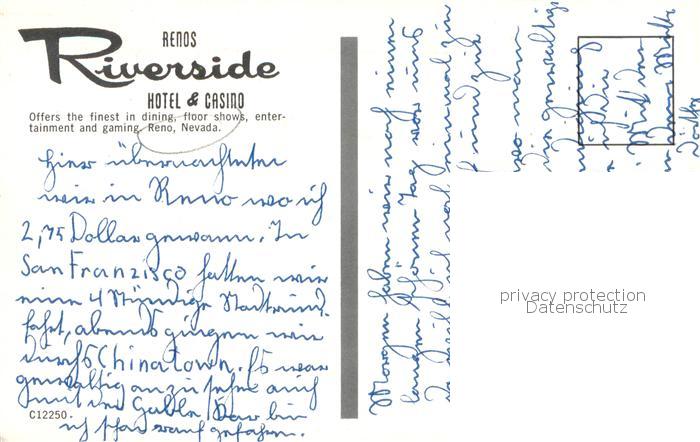 RENOS
Riverside
HOTEL & CASINO
Offers the finest in dining, floor shows, enter-
tainment and gaming. Reno, Nevada.
Hier übernachteten
wir in Reno wo ich
2,75 Dollar gewann. In
San Franzisco hatten wir
eine 4 Stündige Stadtrund-
fahrt, abends gingen wir
durchs Chinatown. Es war
gewaltig anzusehn auch
mit der Cable Car bin
ich schon rauf gefahren.
C12250
Morgen haben wir noch einen
langen schönen Tag vor uns
noch einmal
wo man
die gewaltige
privacy protection
Datenschutz